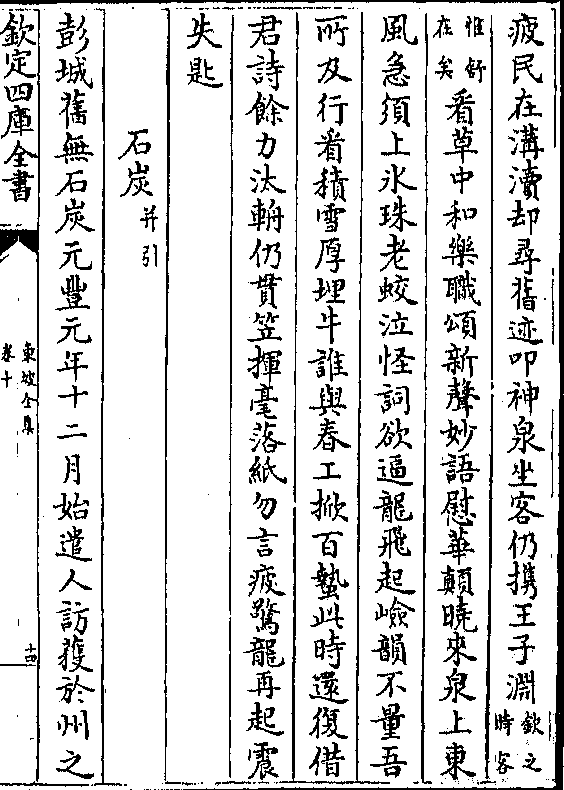 疲民在溝瀆却尋舊迹叩神泉坐客仍携王子淵欽之時客
惟舒在矣看草中和樂職頌新聲妙語慰華顛曉來泉上東
風急須上氷珠老蛟泣怪詞欲逼龍飛起嶮韻不量吾
所及行看積雪厚埋牛誰與春工掀百蟄此時還復借
君詩餘力汰輈仍貫笠揮毫落紙勿言疲驚龍再起震
失匙
石炭并引
彭城舊無石炭元豐元年十二月始遣人訪獲於州之
欽定四庫全書
東坡全集
卷十
十四